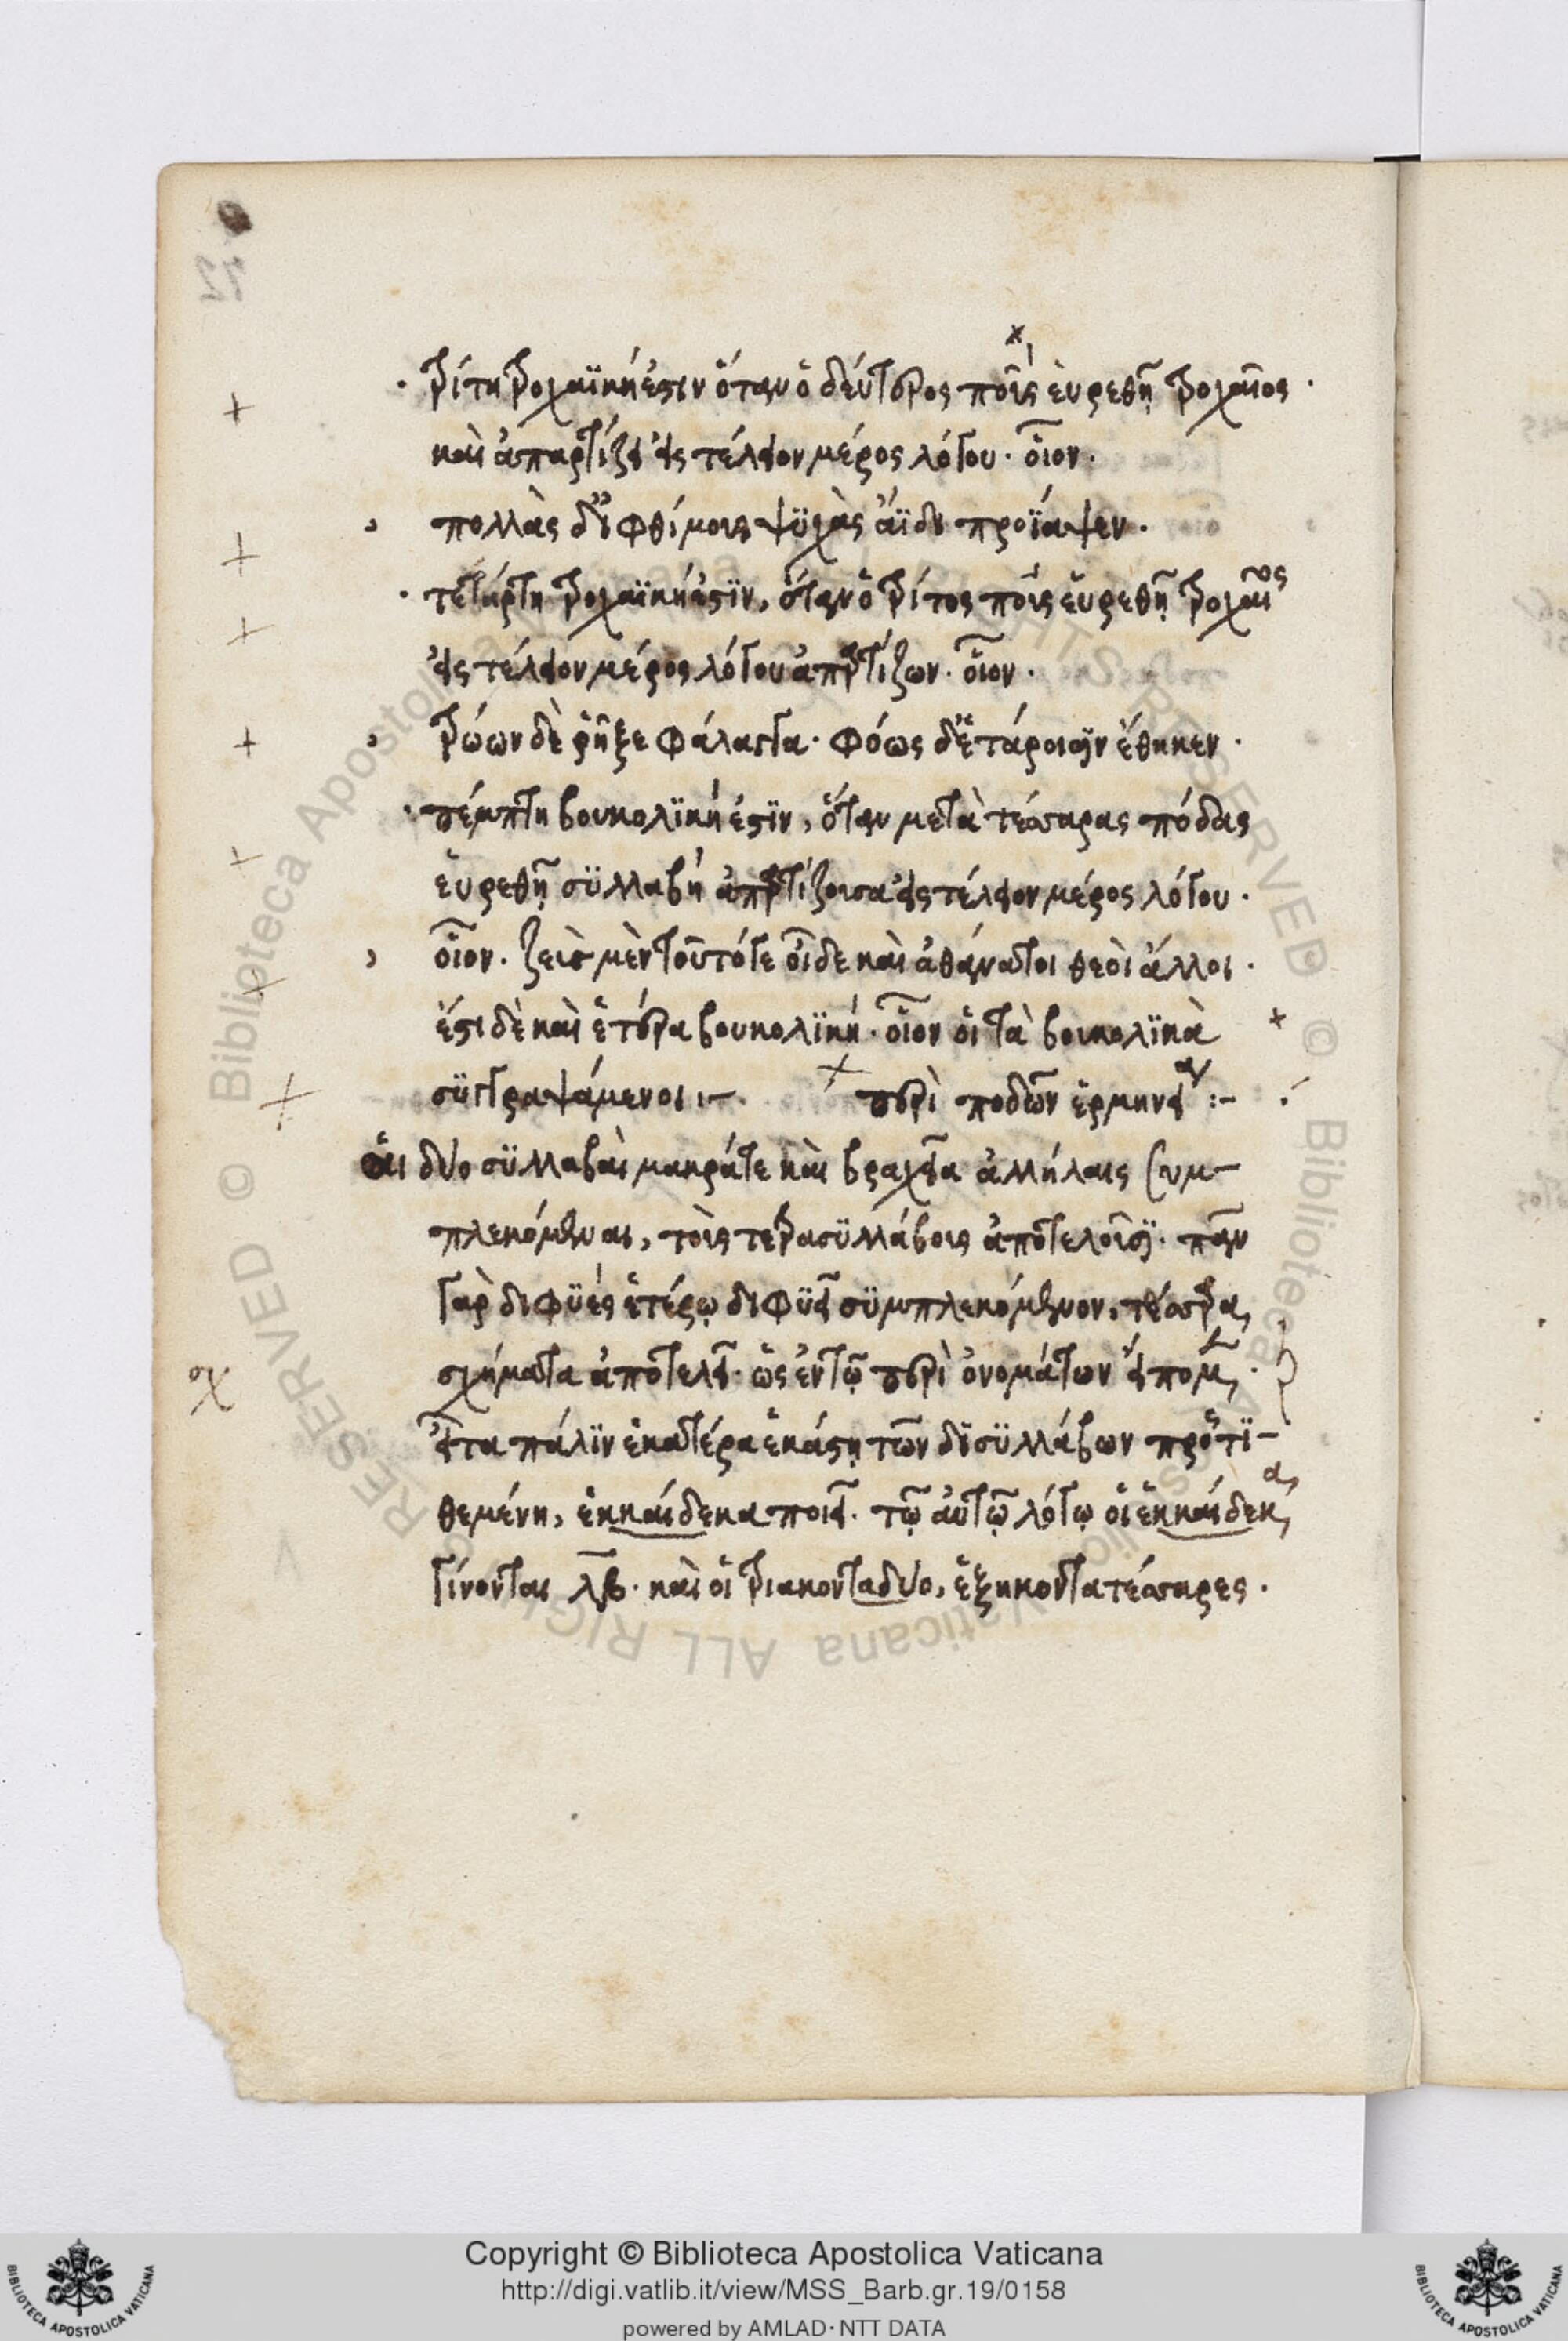 τρίτη τροχαϊκή ἐστιν ὅταν ὁ δεύτερος ποῦς εὑρεθῆ τροχαῖος ·
καὶ ἀπαρτίζει εἰς τέλειον μέρος λόγου · οἷον ·
πολλὰς δ' ἰφθίμους ψυχὰς ἄϊδι προΐαψεν ·
τετάρτη τροχαϊκή ἐστϊν, ὅταν ὁ τρίτος ποῦς εὑρεθῆ τροχαῖος
εἰς τέλειον μέρος λόγου ἀπαρτίζων · οἷον ·
τρώων δὲ ῥῆξε φάλαγγα · φόως δ' ἑτάροισιν ἔθηκεν ·
πέμπτη βουκολϊκή ἐστϊν, ὅταν μετὰ τέσσαρας πόδας
εὑρεθῆ συλλαβὴ ἀπαρτίζουσα εἰς τέλειον μέρος λόγου ·
οἷον · ζεὺς μὲν τοῦ τότε οἶδε καὶ ἀθάνατοι θεοὶ ἄλλοι ·
ἔστι δὲ καὶ ἑτέρα βουκολϊκή · οἷον οἱ τὰ βουκολϊκὰ
συγγραψάμενοι :- περὶ ποδῶν ἑρμηνεία :-
αἱ δύο συλλαβαὶ μακρά τε καὶ βραχεῖα ἀλλήλαις συμ-
πλεκόμεναι, τοῖς τετρασυλλάβοις ἀποτελοῦσϊ · πᾶν
γὰρ διφυὲς ἑτέρῳ διφυεῖ συμπλεκόμενον, τέσσαρα
σχήματα ἀποτελεῖ · ὡς ἐν τῷ περὶ ὀνομάτων εἴπομεν ·
σχ
εἶτα πάλϊν ἑκατέρα ἑκάστῃ τῶν δϊσυλλάβων προστϊ-
θεμένη, ἑκκαίδεκα ποιεῖ · τῷ αὐτῷ λόγῳ οἱ ἑκκαίδεκα
γίνονται λβ · καὶ οἱ τριακονταδύο, ἑξηκοντατέσσαρες ·
© Biblioteca Apostolica Vaticana ALL RIGHTS RESERVED
Copyright © Biblioteca Apostolica Vaticana
http://digi.vatlib.it/view/MSS_Barb.gr.19/0158
powered by AMLAD·NTT DATA
BIBLIOTECA APOSTOLICA VATICANA
BIBLIOTECA APOSTOLICA VATICANA